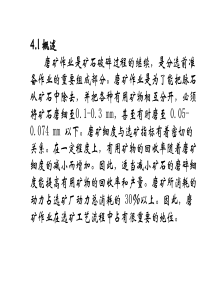 4.1 概述
磨矿作业是矿石破碎过程的继续，是分选前准
备作业的重要组成部分。磨矿作业是为了能把脉石
从矿石中除去，并把各种有用矿物相互分开，必须
将矿石磨细至0.1-0.3 mm，甚至有时磨至 0.05-
0.074 mm 以下。磨矿细度与选矿指标有着密切的
关系。在一定程度上，有用矿物的回收率随着磨矿
细度的减小而增加。因此，适当减小矿石的磨碎细
度能提高有用矿物的回收率和产量。磨矿所消耗的
动力占选矿厂动力总消耗的 30%以上。因此，磨
矿作业在选矿工艺流程中占有很重要的地位。